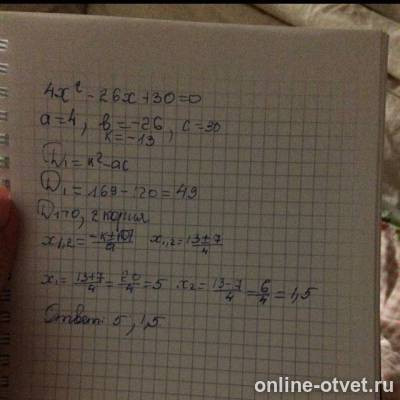 4x² - 26x + 30 = 0
a = 4, в = -26, c = 30
k = -13
D₁ = k² - ac
D₁ = 169 - 120 = 49
D₁>0, 2 корня
x₁,₂ = x₁,₂ = 13±7/4
x₁ = 13+7/4 = 20/4 = 5 x₂ = 13-7/4 = 6/4 = 1,5
Ответ: 5, 1,5
online-otvet.ru